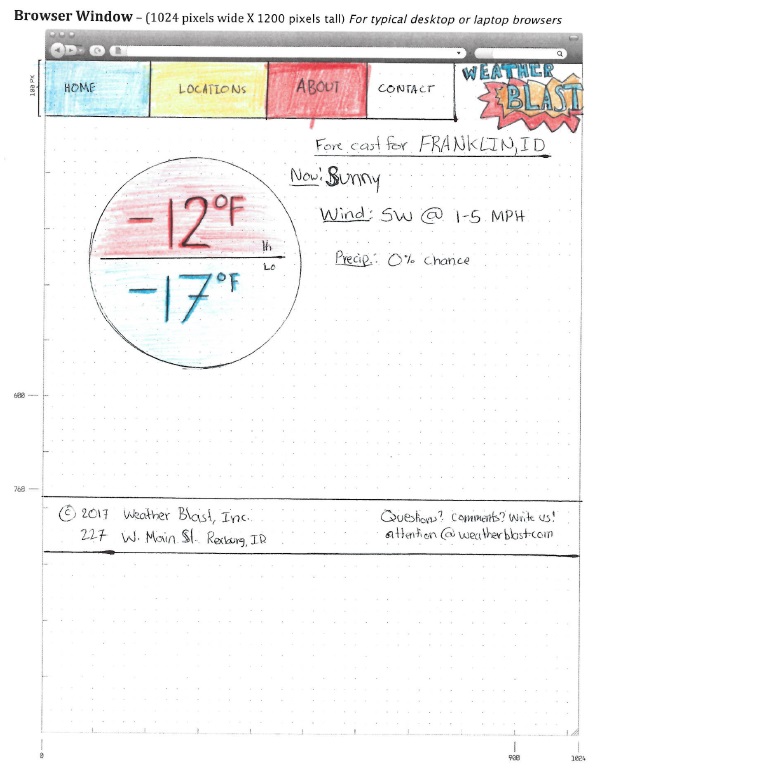 Browser Window – (1024 pixels wide X 1200 pixels tall) For typical desktop or laptop browsers
100 PX
HOME LOCATIONS ABOUT CONTACT
WEATHER
BLAST
Fore cast for FRANKLIN, ID
Now: Sunny
-12°F
Hi
Wind: SW @ 1-5 MPH
Precip.: 0% chance
Lo
-17°F
600
768
© 2017 Weather Blast, Inc.
227 W. Main St. Rexburg, ID
Questions? Comments? Write us!
attention@weatherblast.com
0 900 1024